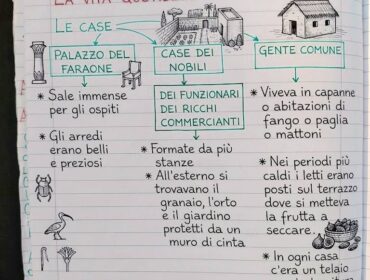 LA VITA
LE CASE
PALAZZO DEL
FARAONE
CASE DEI
NOBILI
GENTE COMUNE
DEI FUNZIONARI
DEI RICCHI
COMMERCIANTI
* Sale immense
per gli ospiti
* Gli arredi
erano belli
e preziosi
* Formate da più
stanze
* All'esterno si
trovavano il
granaio, l'orto
e il giardino
protetti da un
muro di cinta
* Viveva in capanne
o abitazioni di
fango o paglia
o mattoni
* Nei periodi più
caldi i letti erano
posti sul terrazzo
dove si metteva
la frutta a
seccare.
* In ogni casa
c'era un telaio